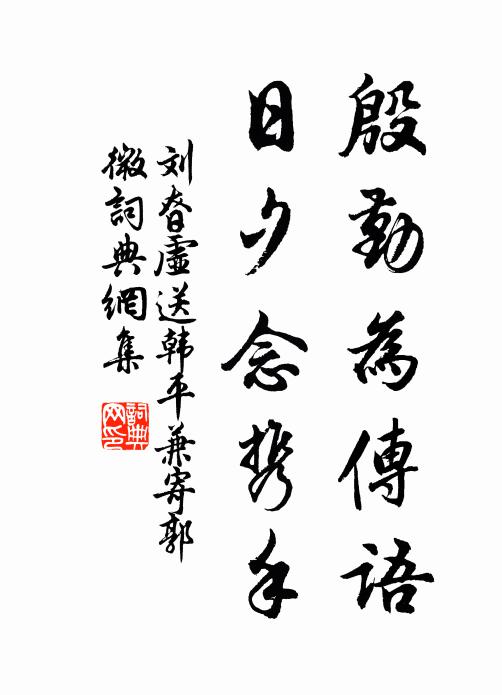 殷勤為傳語
日夕念携手
刘眘虛送韩平兼寄郭
微詞典網集
詞典
网印